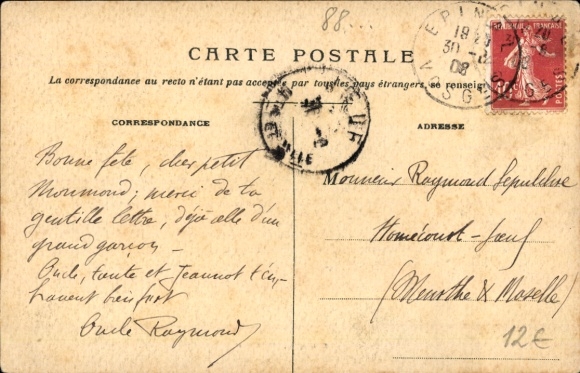 88....
CARTE POSTALE
La correspondance au recto n'étant pas acceptée par tous les pays étrangers, se renseigner
CORRESPONDANCE
ADRESSE
Bonne fête, cher petit
Moumond; merci de ta
gentille lettre, déjà celle d'un
grand garçon –
Oncle, tante et Jeannot t'em-
brassent bien fort
Oncle Raymond
Monsieur Raymond Sepulchre
Homécourt-Jœuf
(Meurthe & Moselle)
EPIN
VOSGES
30
08
10
POSTES
12€